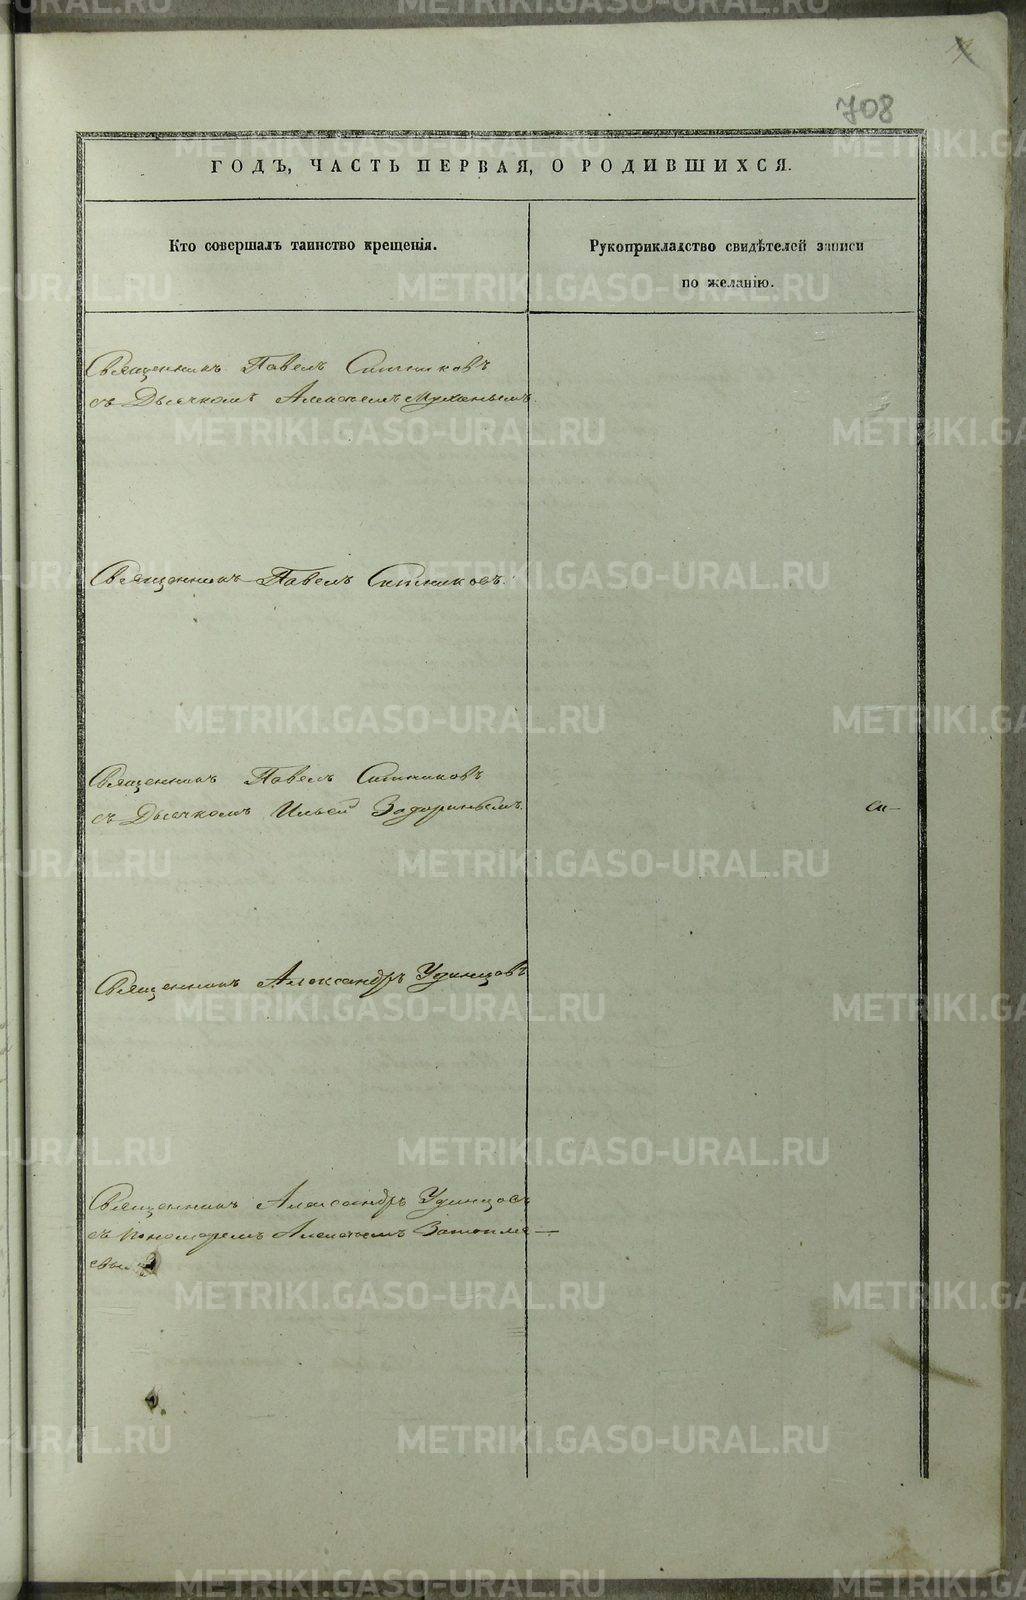 708
ГОДЪ, ЧАСТЬ ПЕРВАЯ, О РОДИВШИХСЯ.
Кто совершалъ таинство крещенія.
Рукоприкладство свидѣтелей записи
по желанію.
Священникъ Павелъ Ситниковъ
съ Дьячкомъ Алексѣемъ
Священникъ Павелъ Ситниковъ.
Священникъ Павелъ Ситниковъ
съ Дьячкомъ Ильей Задоринымъ.
Священникъ Александръ Удинцовъ
Священникъ Александръ Удинцовъ
съ пономаремъ Алексѣемъ
METRIKI.GASO-URAL.RU